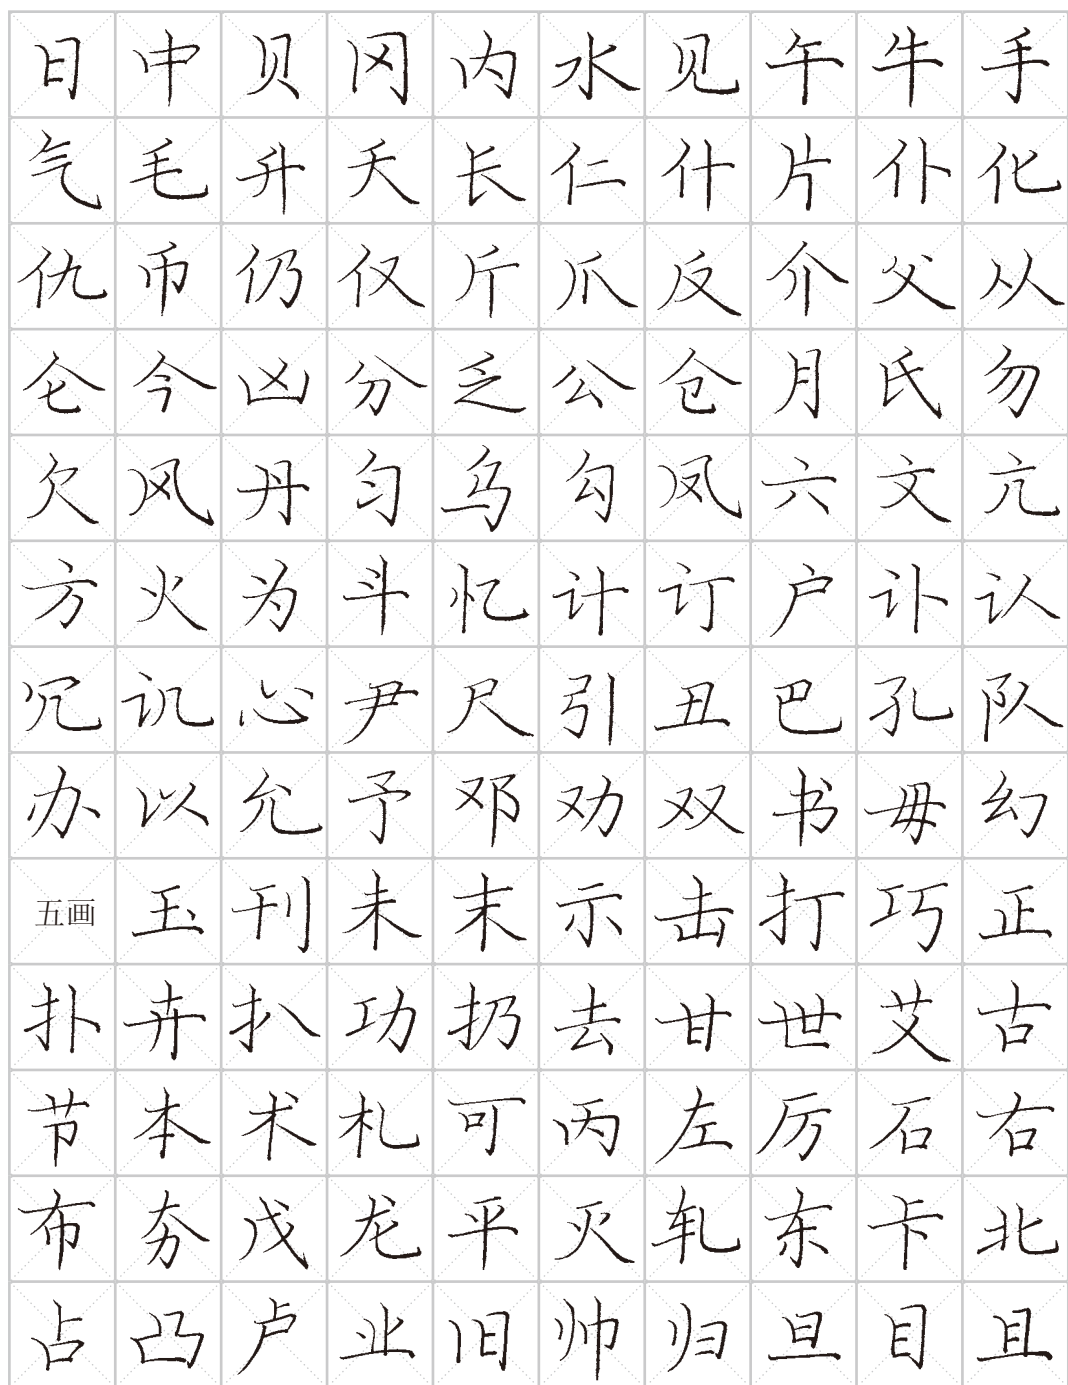 日中贝冈内水见午牛手
气毛升夭长仁什片仆化
仇币仍仅斤爪反介父从
仑今凶分乏公仓月氏勿
欠风丹匀乌勾凤六文亢
方火为斗忆计订户讣认
冗讥心尹尺引丑巴孔队
办以允予邓劝双书毋幻
五画玉刊未末示击打巧正
扑卉扒功扔去甘世艾古
节本术札可丙左厉石右
布夯戊龙平灭轧东卡北
占凸卢业旧帅归旦目且